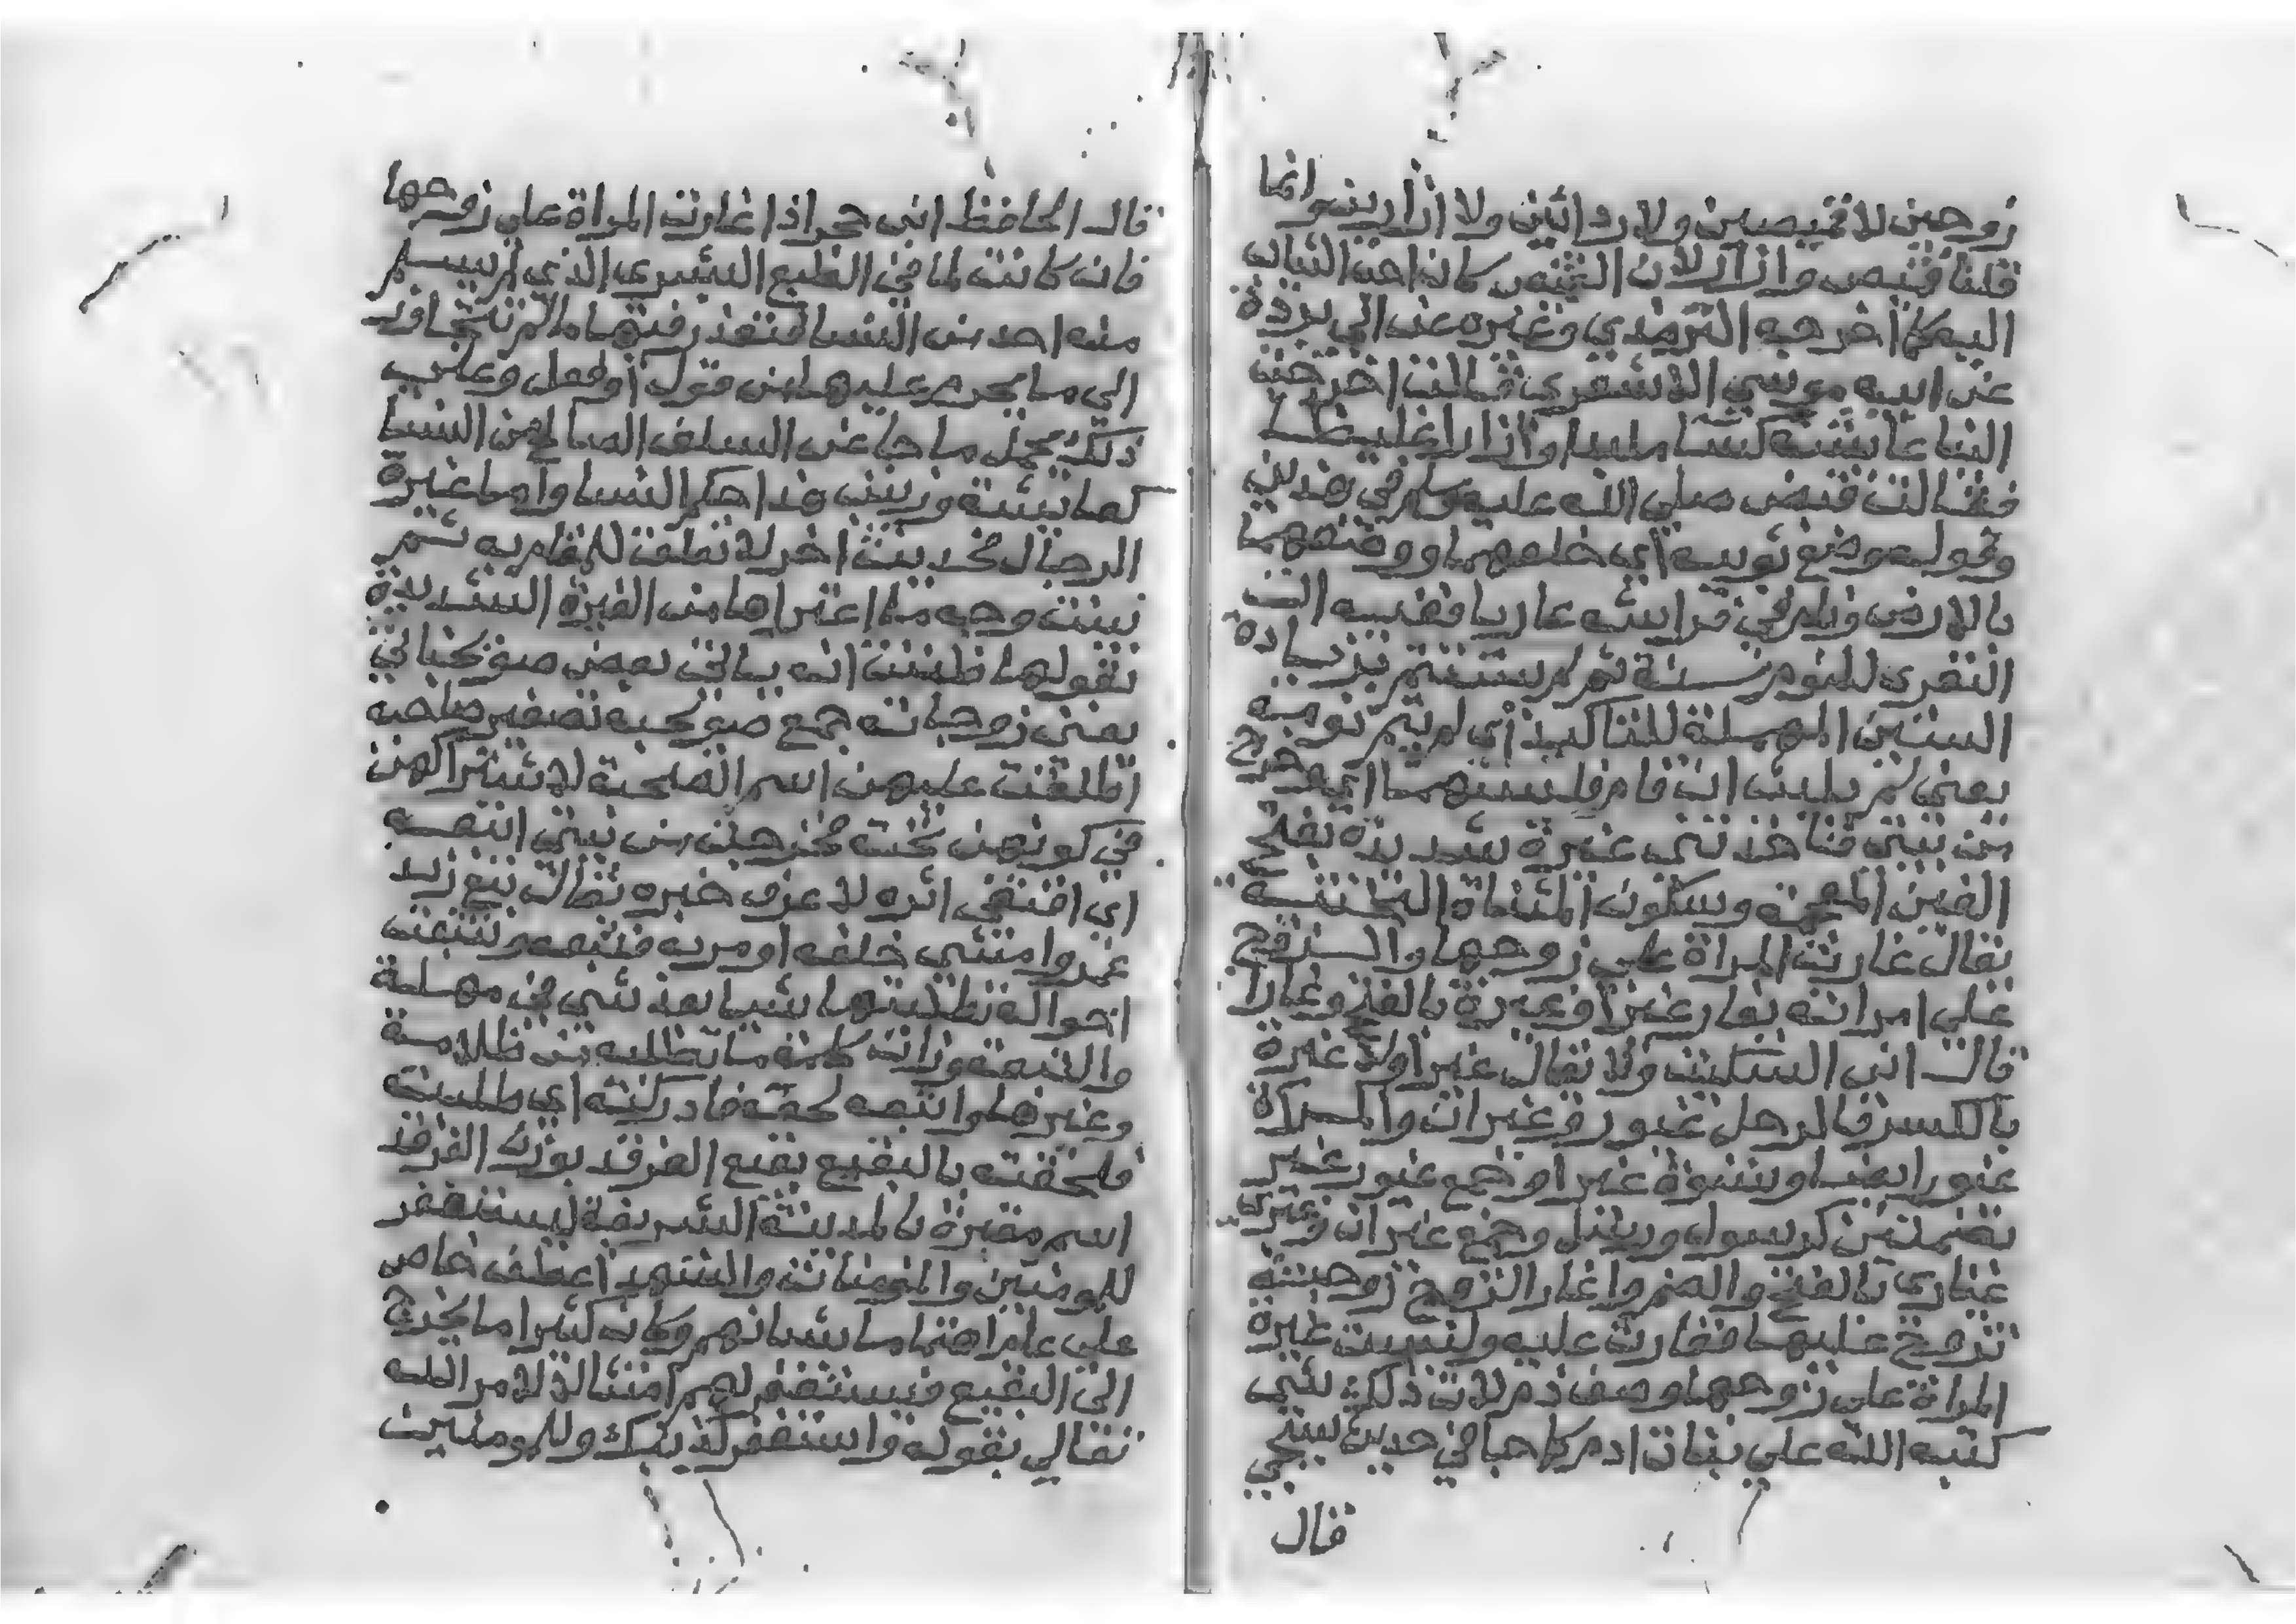 زوجين لا قميصين ولا ردائين ولا ازارين وانما
قلنا قميص وازار لان القميص كان احب الثياب
اليه كما اخرجه الترمذي وغيره عن ابي بردة
عن ابيه موسى الاشعري قالت اخرجت
الينا عائشة كساء ملبدا وازارا غليظا
فقالت قبض صلى الله عليه وسلم في هذين
وقوله وضع ثوبيه اي خلعهما ووضعهما
بالارض ونام في فراشه عاريا ففيه
التعري للنوم سنة ثم لم يستتم بزيادة
السين المهملة للتاكيد اي لم يتم نومه
يعني لم يلبث ان قام فلبسهما اي خرج
من بيتي فاخذتني غيرة شديدة بفتح
الغين المعجمة وسكون المثناة التحتية
يقال غارت المراة على زوجها والزوج
على امراته يغار غيرا وغيرة بالفتح وغارا
قال ابن السكيت ولا يقال غيرا ولا غيرة
بالكسر فالرجل غيور وغيران والمراة
غيور ايضا ونسوة غير اوجمع غيور غير
بضمتين كرسول ورسل وجمع غيران وغيرى
غيارى بالفتح والضم واغار الزوج زوجته
تزوج عليها فغارت عليه وليست غيرة
المراة على زوجها وصف ذم لان ذلك شي
كتبه الله على بنات ادم كما جا في حديث سيجي
قال
قال الحافظ ابن حجر اذا غارت المراة على زوجها
فان كانت لما في الطبع البشري الذي لم يسلم
منه احد من النسا فتعذر فيها ما لم تتجاوز
الى ما يحرم عليها من قول او فعل وعلى
ذلك يحمل ما جا عن السلف الصالح من النسا
كعائشة وزينب هذا حكم النسا واما غيرة
الرجال فحديث اخر لا تعلق للمقام به ثم
بينت وجه ما اعتراها من الغيرة الشديدة
بقولها ظننت انه ياتي بعض صويحباتي
يعني زوجاته جمع صويحبة تصغير صاحبة
اطلقت عليهن اسم الصحبة لاشتراكهن
في كونهن تحت فخرجت من بيتي اتبعه
اي اقتفي اثره لاعرف خبره يقال تبع زيد
عمروا مشى خلفه او مر به فتبعه وتتبعت
احواله تطلبتها شيا بعد شي في مهلة
والتبعة وزان كلمة ما تطلبه من ظلامة
وغيرها واتبعه لحقه فادركته اي طلبت
فلحقته بالبقيع بقيع الغرقد بوزن الفرقد
اسم مقبرة بالمدينة الشريفة يستغفر
للمومنين والمومنات والشهدا عطف خاص
على عام اهتماما بشانهم وكان كثيرا ما يخرج
الى البقيع فيستغفر لهم امتثالا لامر الله
تعالى بقوله واستغفر لذنبك وللمومنين